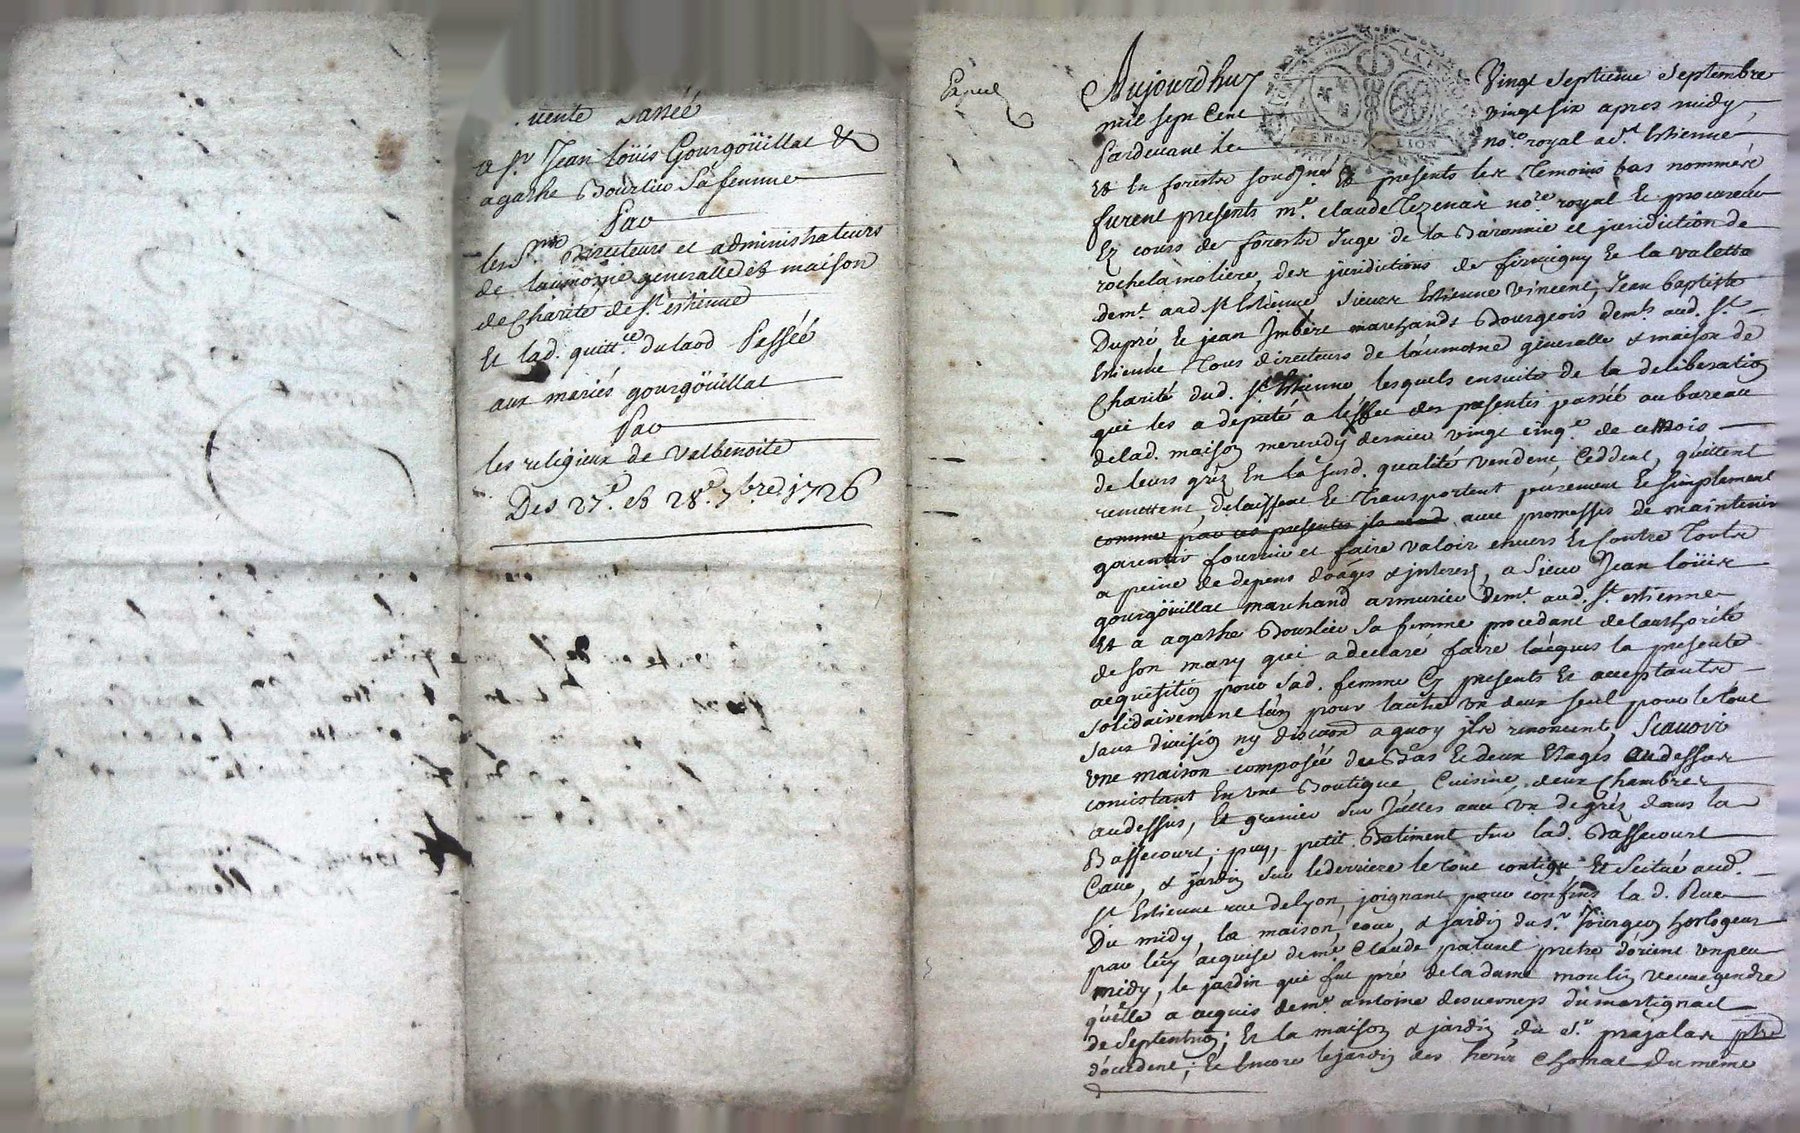 vente passéé
a sr. Jean Loüis Gourgoüillat &
agathe Bourlier sa femme
Par
les srs. Directeurs et administrateurs
de laumône generalle et maison
de Charité de st. estienne
Et lad. quittce. du laod Passéé
aux mariés gourgoüillat
Par
les religieux de valbenoite
Des 27e. et 28e. 7bre. 1726
Aujourdhuy Vingt Septieme Septembre
mil sept Cent vingt six apres midy
Pardevant le nore. royal a st. Estienne
Et en forestz soussigné Et presents les Temoins bas nommés
furent presents me. Claude Tezenas nore. royal Et procureur
Ez cours de forestz Juge de la Baronnie et juridiction de
rochelamoliere, des juridictions de firmigny Et la valette
demt. aud. St Estienne Sieurs Estienne Vincent, Jean baptiste
Dupré Et jean Imbert marchands Bourgeois demts aud. St.
Estienne Tous directeurs de l'aumosne generalle & maison de
Charité dud. St. Estienne lesquels ensuite de la deliberation
qui les a deputé a l'effet des presentes passéé au bureau
de lad. maison mercredy dernier vingt cinqe. de ce mois
de leurs gréz En la susd. qualité vendent, Ceddent, quittent
remettent, delaissent Et Transportent purement Et simplement
comme par ces presentes ils avec promesses de maintenir
garentir fournir et faire valoir envers Et Contre Toutz
a peine de depens doâges & interest, a Sieur Jean Loüis
gourgoüillat marchand armurier demt. aud. St. estienne
Et a agathe Bourlier Sa femme procedant de lauthorité
de son mary qui a declaré faire lacquis la presente
acquisition pour Sad. femme Cy presents Et acceptants
solidairement l'un pour lautre un deux seul pour le tout
sans division ny discord a quoy ils renoncent, Scavoir
une maison composéé de Bas Et deux Etages audessus
consistant En une Boutique, Cuisine, deux Chambres
audessus, Et grenier sur Icelles avec un degréz dans la
Bassecourt, puy, petit Batiment sur lad. Bassecourt
Cave, & jardin sur le derriere le tout contigu, Et scitué aud.
St Estienne rue de lyon, joignant pour confins la d. Rue
Du midy, la maison, cour, & jardin du sr. horlogeur
par luy acquise de me. Claude paturel pretre d'orient un peu
midy, le jardin qui fut pré de la dame moulin veuve gendre
qu'elle a acquis de me. antoine desverneys du martignac
de Septentrion; Et la maison & jardin du sr. prajalas
d'occident; Et Encore le jardin des hoirs Chomat du même